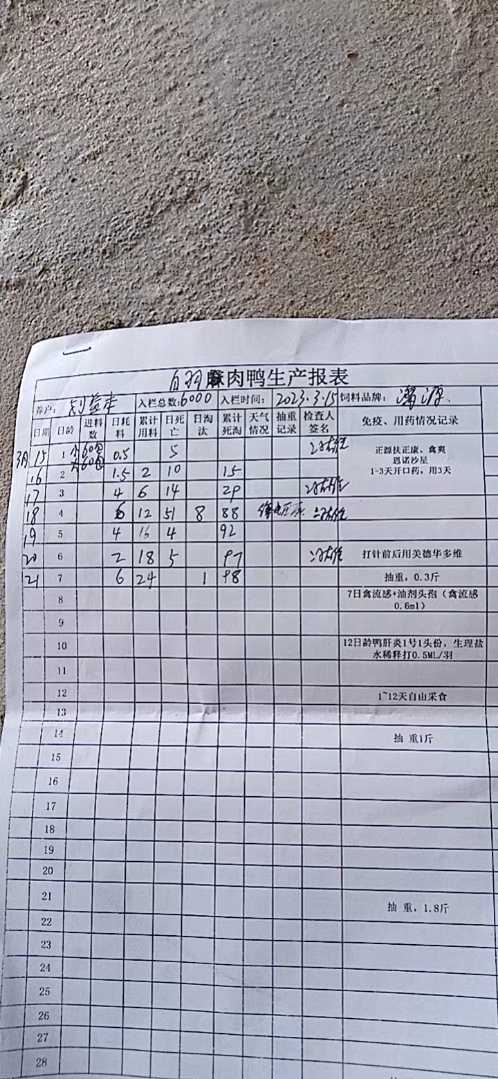 白羽肉鸭生产报表
养户: 入栏总数:6000 入栏时间: 2023.3.15 饲料品牌:
日期 日龄 进料数 日耗料 累计用料 日死亡 日淘汰 累计死淘 天气情况 抽重记录 检查人签名 免疫、用药情况记录
3月15 1 0.5 5 正源扶正康、禽爽
恩诺沙星
1-3天开口药，用3天
16 2 1.5 2 10 15
17 3 4 6 14 29
18 4 6 12 51 8 88
19 5 4 16 4 92
20 6 2 18 5 97 打针前后用美德华多维
21 7 6 24 1 98 抽重，0.3斤
8 7日禽流感+油剂头孢（禽流感
0.6ml）
9
10 12日龄鸭肝炎1号1头份，生理盐
水稀释打0.5ML/羽
11
12 1~12天自由采食
13
14 抽 重1斤
15
16
17
18
19
20
21 抽 重，1.8斤
22
23
24
25
26
27
28